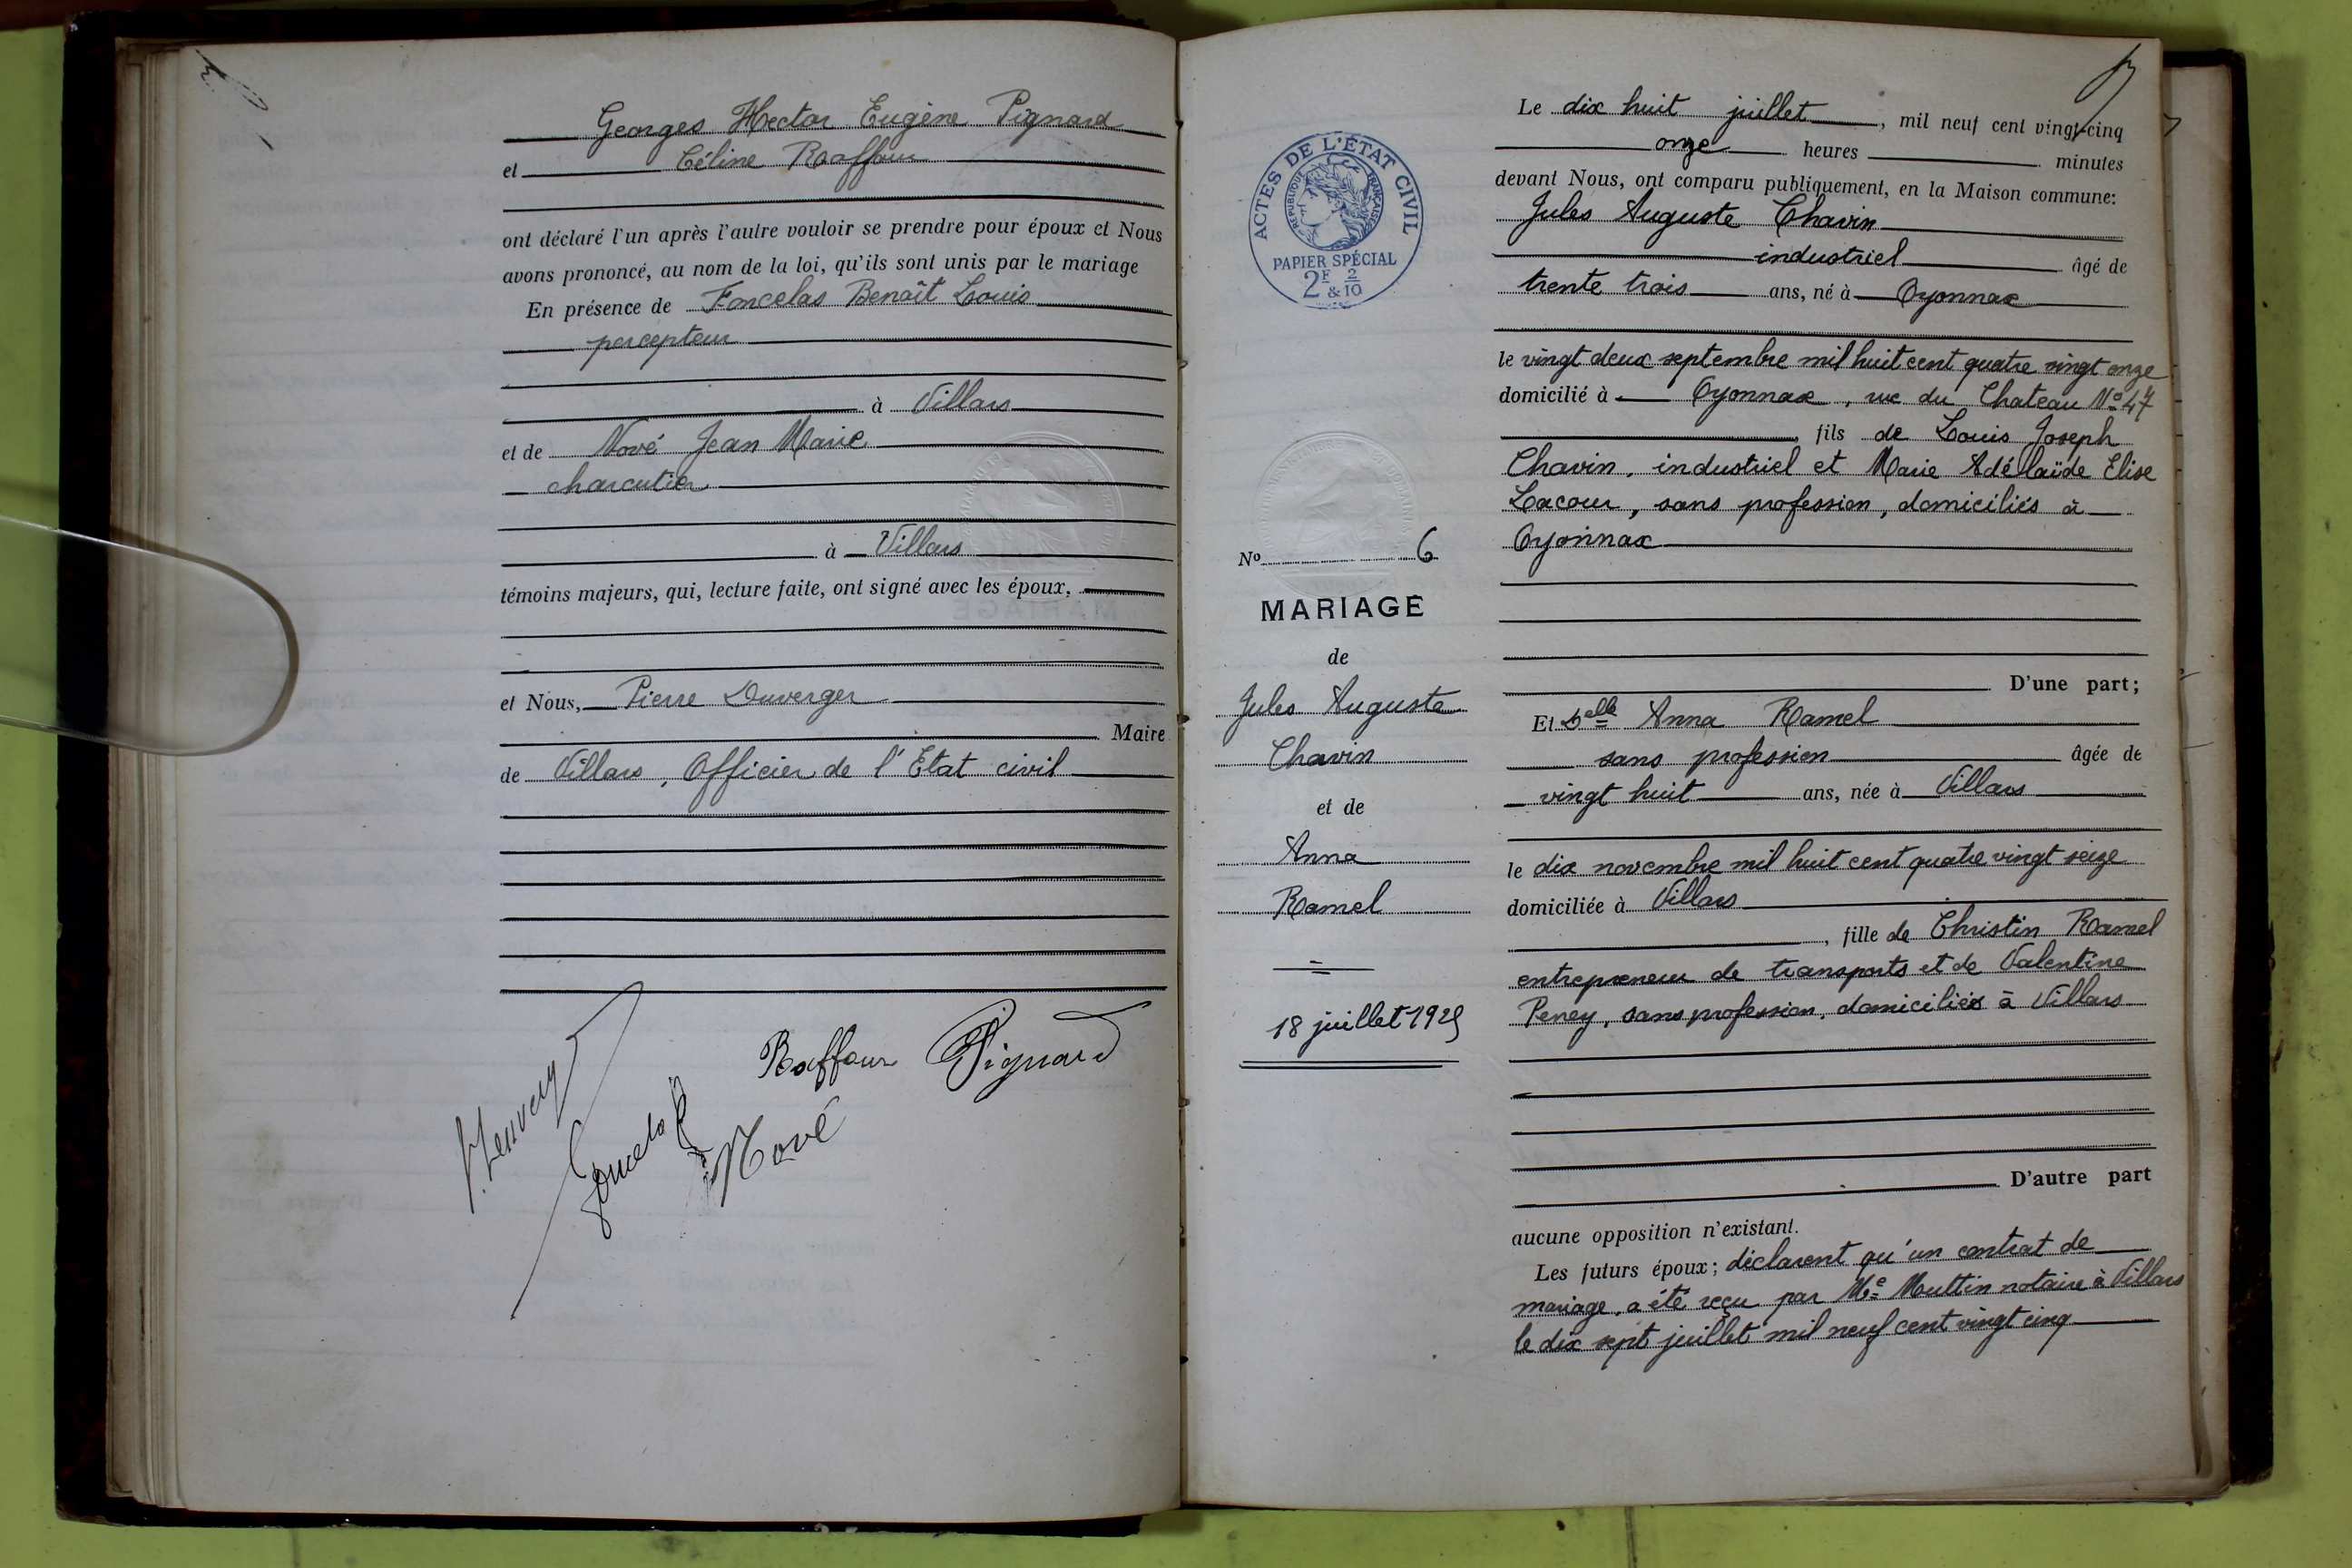 Georges Hector Eugène Pignard
et Céline Raffour
ont déclaré l'un après l'autre vouloir se prendre pour époux et Nous
avons prononcé, au nom de la loi, qu'ils sont unis par le mariage
En présence de Foncelas Benoît Louis
percepteur
à Villars
et de Nové Jean Marie
charcutier
à Villars
témoins majeurs, qui, lecture faite, ont signé avec les époux,
et Nous, Pierre Duverger
Maire
de Villars, Officier de l'Etat civil
Raffour Pignard
Nové
ACTES DE L'ÉTAT CIVIL
RÉPUBLIQUE FRANÇAISE
PAPIER SPÉCIAL
2F & 2/10
No 6
MARIAGE
de
Jules Auguste
Chavin
et de
Anna
Ramel
18 juillet 1925
Le dix huit juillet, mil neuf cent vingt-cinq
onze heures minutes
devant Nous, ont comparu publiquement, en la Maison commune:
Jules Auguste Chavin
industriel âgé de
trente trois ans, né à Oyonnax
le vingt deux septembre mil huit cent quatre vingt onze
domicilié à Oyonnax, rue du Chateau No 47
fils de Louis Joseph
Chavin, industriel et Marie Adélaïde Elise
Lacour, sans profession, domiciliés à
Oyonnax
D'une part;
Et Delle Anna Ramel
sans profession âgée de
vingt huit ans, née à Villars
le dix novembre mil huit cent quatre vingt seize
domiciliée à Villars
, fille de Christin Ramel
entrepreneur de transports et de Valentine
Peney, sans profession, domiciliés à Villars
D'autre part
aucune opposition n'existant.
Les futurs époux; déclarent qu'un contrat de
mariage, a été reçu par Me Muttin notaire à Villars
le dix sept juillet mil neuf cent vingt cinq